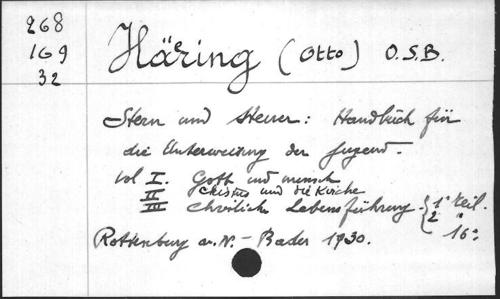 268
169
32
Häring (Otto) O.S.B.
Stern und Steuer: Handbuch für
die Unterweisung der Jugend.
vol I. Gott und mensch
II Christus und die Kirche
III Christliche Lebensführung. 1° Teil.
2 "
Rottenburg a.N. - Bader 1930. 16°